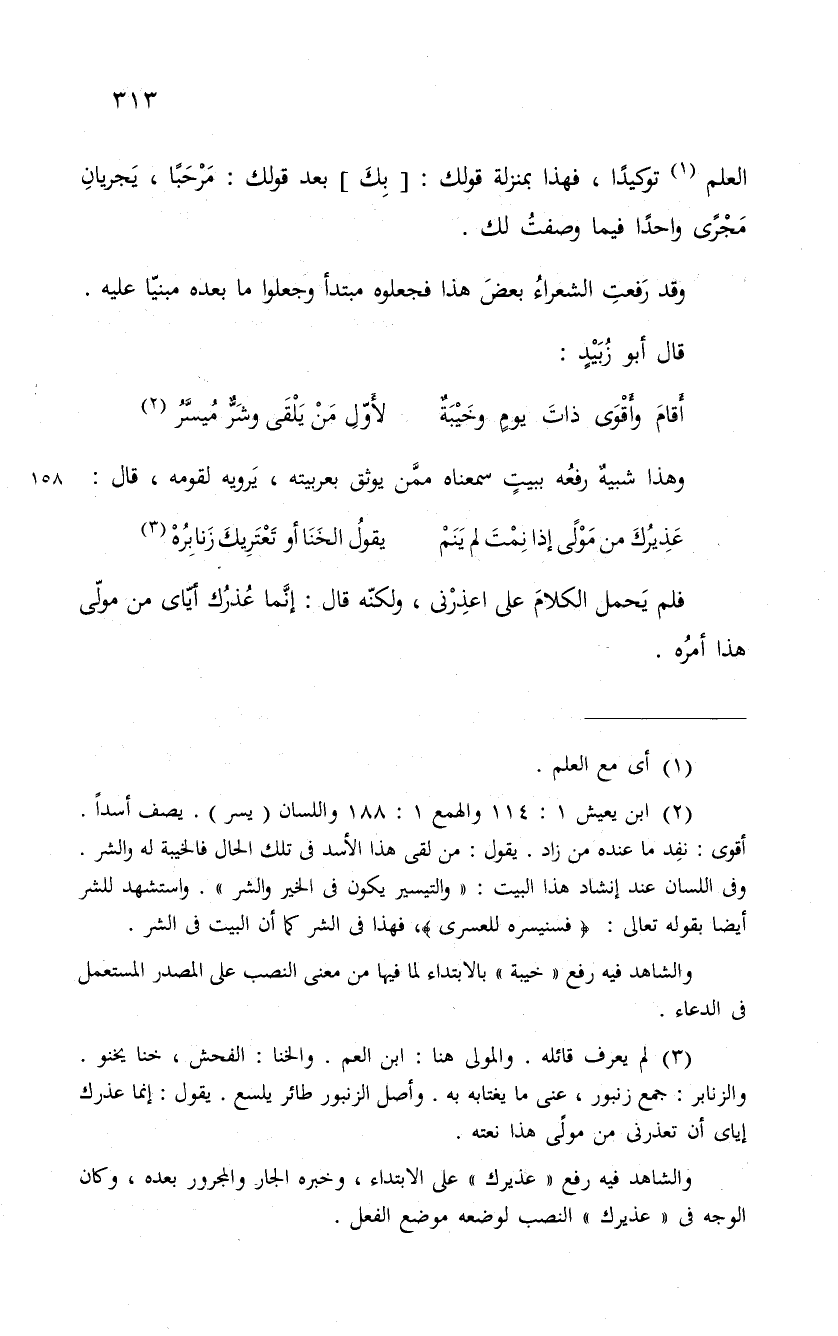 ٣١٣
العلم (١) توكيدًا ، فهذا بمنزلة قولك : [ بِكَ ] بعد قولك : مَرْحَبًا ، يَجريانِ
مَجْرًى واحدًا فيما وصفتُ لك .
وقد رَفعتِ الشعراءُ بعضَ هذا فجعلوه مبتدأ وجعلوا ما بعده مبنيّا عليه .
قال أبو زُبَيْدٍ :
أَقامَ وأَقْوَى ذاتَ يومٍ وخَيْبَةٌ لأَوّلِ مَنْ يَلْقَى وشَرٌّ مُيسَّرُ (٢)
وهذا شبيهٌ رفعُه ببيتٍ سمعناه ممَّن يوثق بعربيته ، يَرويه لقومه ، قال : ١٥٨
عَذِيرُكَ من مَوْلًى إذا نِمْتَ لم يَنَمْ يقولُ الخَنَا أو تَعْتَرِيكَ زَنابِرُهْ (٣)
فلم يَحمل الكلامَ على اعذِرْنى ، ولكنّه قال : إنَّما عُذرُك أيّاى من مولًى
هذا أمرُه .
(١) أى مع العلم .
(٢) ابن يعيش ١ : ١١٤ والهمع ١ : ١٨٨ واللسان ( يسر ) . يصف أسداً .
أقوى : نفِد ما عنده من زاد . يقول : من لقى هذا الأسد فى تلك الحال فالخيبة له والشر .
وفى اللسان عند إنشاد هذا البيت : « والتيسير يكون فى الخير والشر » . واستشهد للشر
أيضا بقوله تعالى : ﴿ فسنيسره للعسرى ﴾، فهذا فى الشر كما أن البيت فى الشر .
والشاهد فيه رفع « خيبة » بالابتداء لما فيها من معنى النصب على المصدر المستعمل
فى الدعاء .
(٣) لم يعرف قائله . والمولى هنا : ابن العم . والخنا : الفحش ، خنا يخنو .
والزنابر : جمع زنبور ، عنى ما يغتابه به . وأصل الزنبور طائر يلسع . يقول : إنما عذرك
إياى أن تعذرنى من مولًى هذا نعته .
والشاهد فيه رفع « عذيرك » على الابتداء ، وخبره الجار والمجرور بعده ، وكان
الوجه فى « عذيرك » النصب لوضعه موضع الفعل .